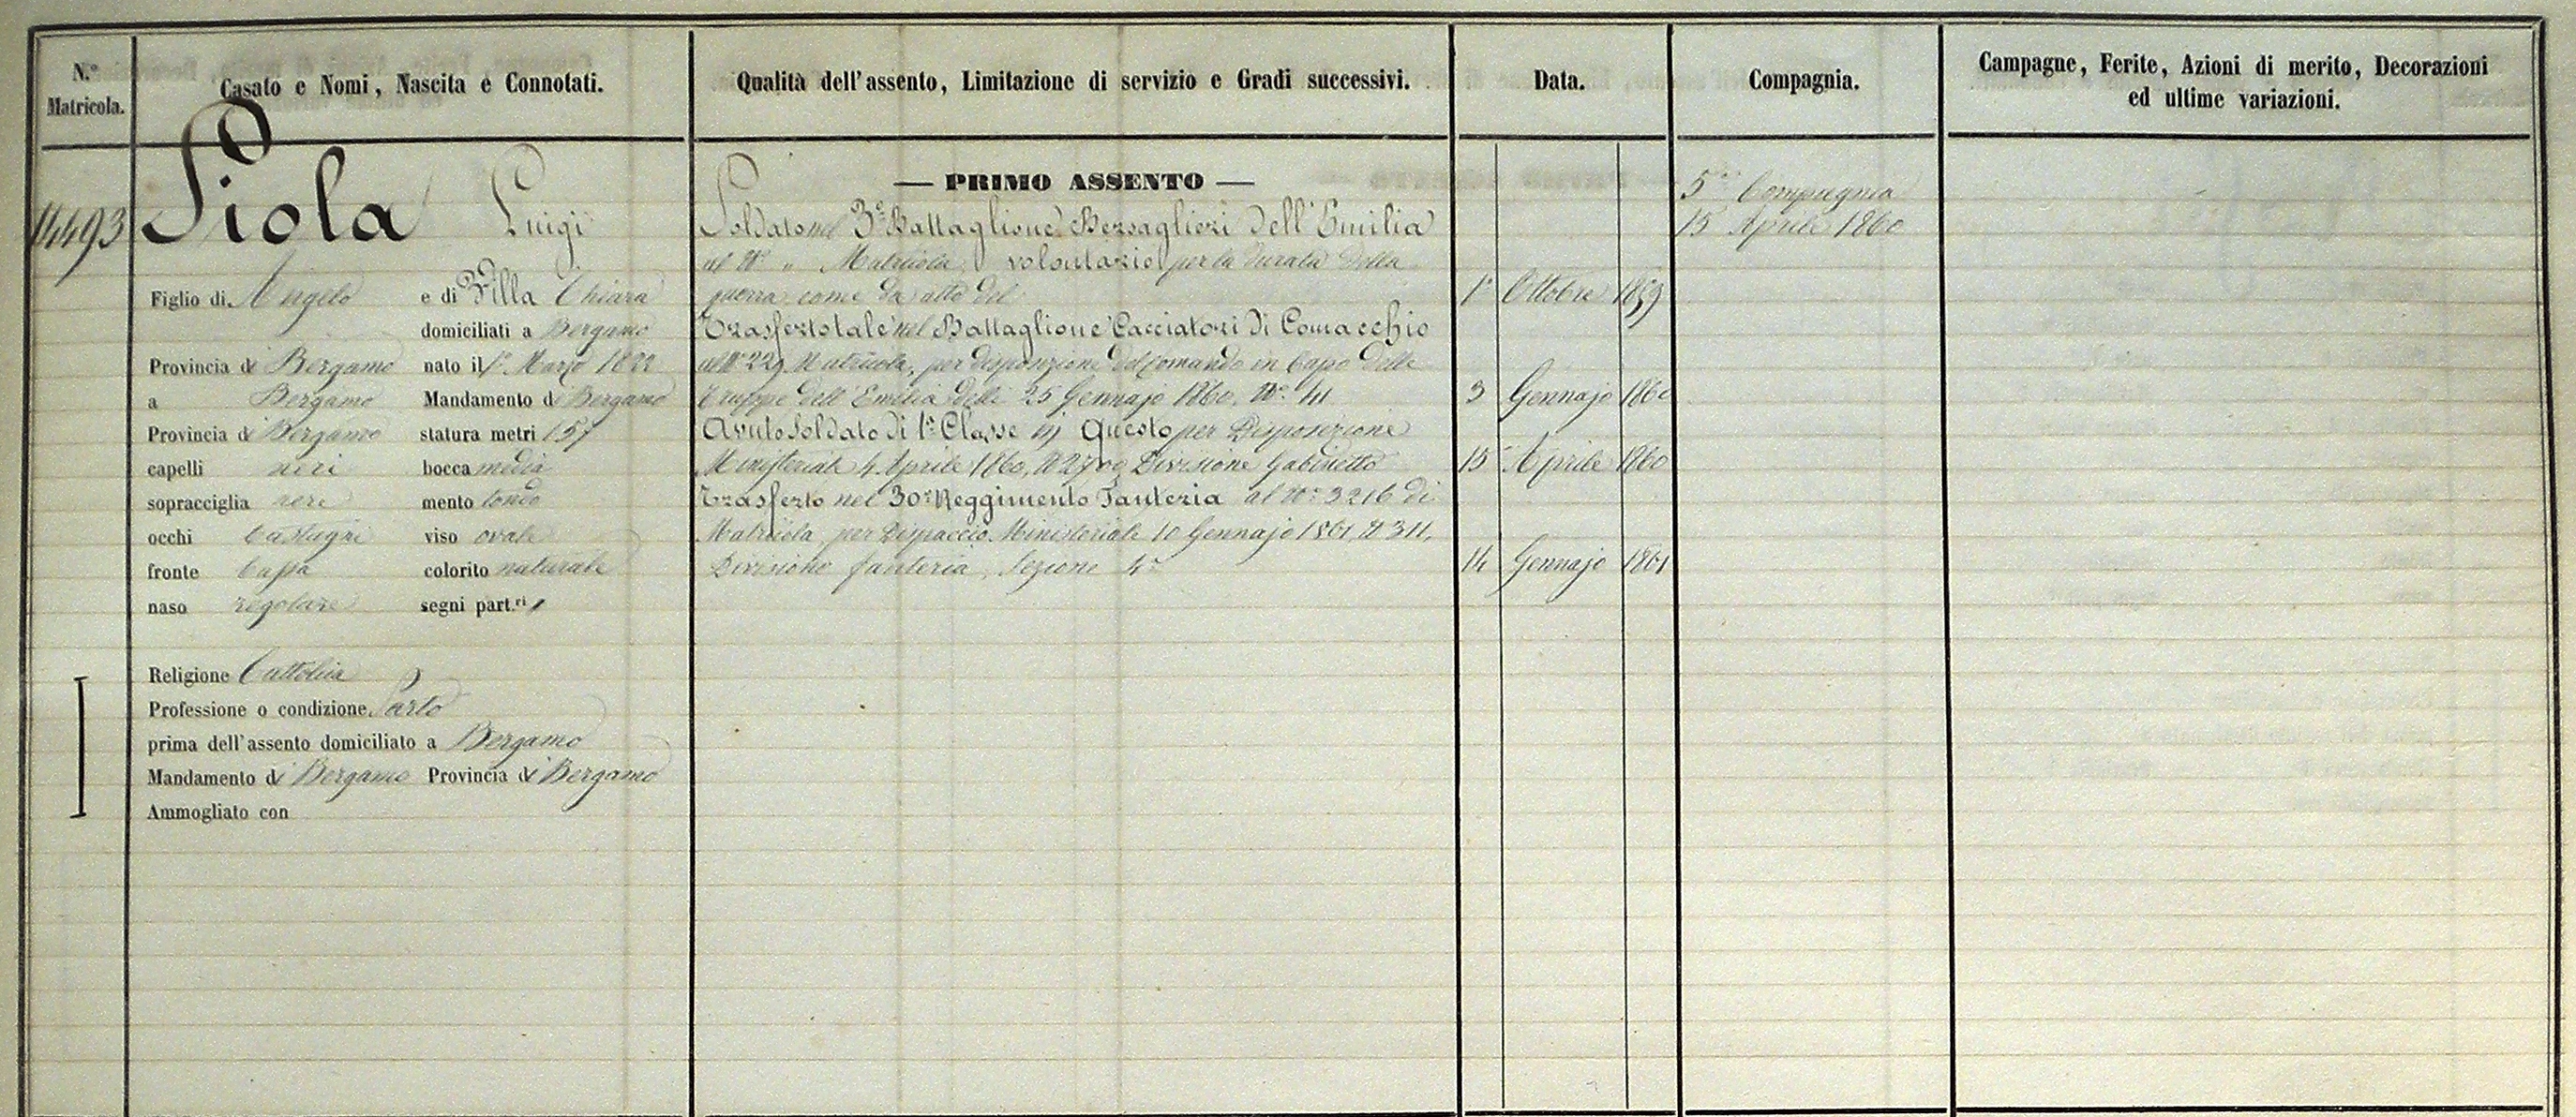 N.º Matricola.
Casato e Nomi, Nascita e Connotati.
Qualità dell'assento, Limitazione di servizio e Gradi successivi.
Data.
Compagnia.
Campagne, Ferite, Azioni di merito, Decorazioni
ed ultime variazioni.
14493
Piola Luigi
Figlio di Angelo e di Villa Chiara
domiciliati a Bergamo
Provincia di Bergamo nato il 1º Marzo 1822
a Bergamo Mandamento di Bergamo
Provincia di Bergamo statura metri 1 57
capelli neri bocca media
sopracciglia nere mento tondo
occhi castagni viso ovale
fronte bassa colorito naturale
naso regolare segni part.ri
Religione Cattolica
Professione o condizione Sarto
prima dell'assento domiciliato a Bergamo
Mandamento di Bergamo Provincia di Bergamo
Ammogliato con
— PRIMO ASSENTO —
Soldato nel 3º Battaglione Bersaglieri dell'Emilia
al Nº " Matricola, volontario per la durata della
guerra come da atto del 1º Ottobre 1859
Trasferto tale nel Battaglione Cacciatori di Comacchio
al Nº 229 Matricola, per disposizione del Comando in Capo delle
truppe dell'Emilia delli 25 Gennajo 1860. Nº 411 3 Gennajo 1860
Avuto Soldato di 1ª Classe in Questo per Disposizione
Ministeriale 4 Aprile 1860, Nº 2700 Divisione Gabinetto 15 Aprile 1860
Trasferto nel 30º Reggimento Fanteria al Nº 3216 di
Matricola per Dispaccio Ministeriale 10 Gennajo 1861, Nº 311,
Divisione fanteria, Sezione 4ª 14 Gennajo 1861
5ª Compagnia
15 Aprile 1860